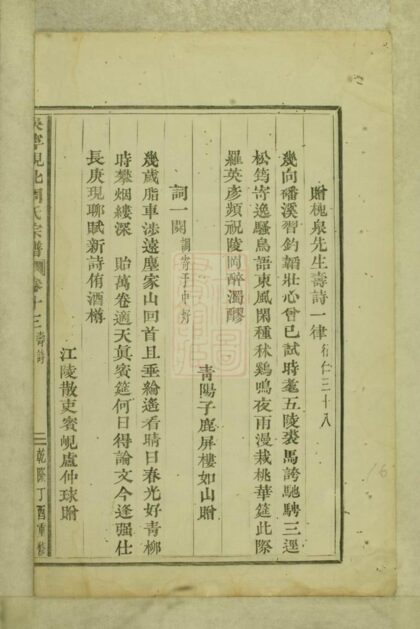 贈槐泉先生壽詩一律 行仁三十八
幾向磻溪習釣韜壯心曾已試時髦五陵裘馬誇馳騁三逕
松筠寄逸騷鳥語東風閑種秫鷄鳴夜雨漫栽桃華筵此際
羅英彥頻祝陵岡醉濁醪
青陽子鹿屏樓如山贈
詞一闋 調寄于中好
幾歲脂車涉遠塵家山回首且垂綸遙看晴日春光好青柳
時攀烟縷深 貽萬卷適天眞賓筵何日得論文今逢强仕
長庚現聊賦新詩侑酒樽
江陵散吏賓峴盧仲球贈
峴北周氏宗譜 卷十三 壽詩
三 乾隆丁酉重修